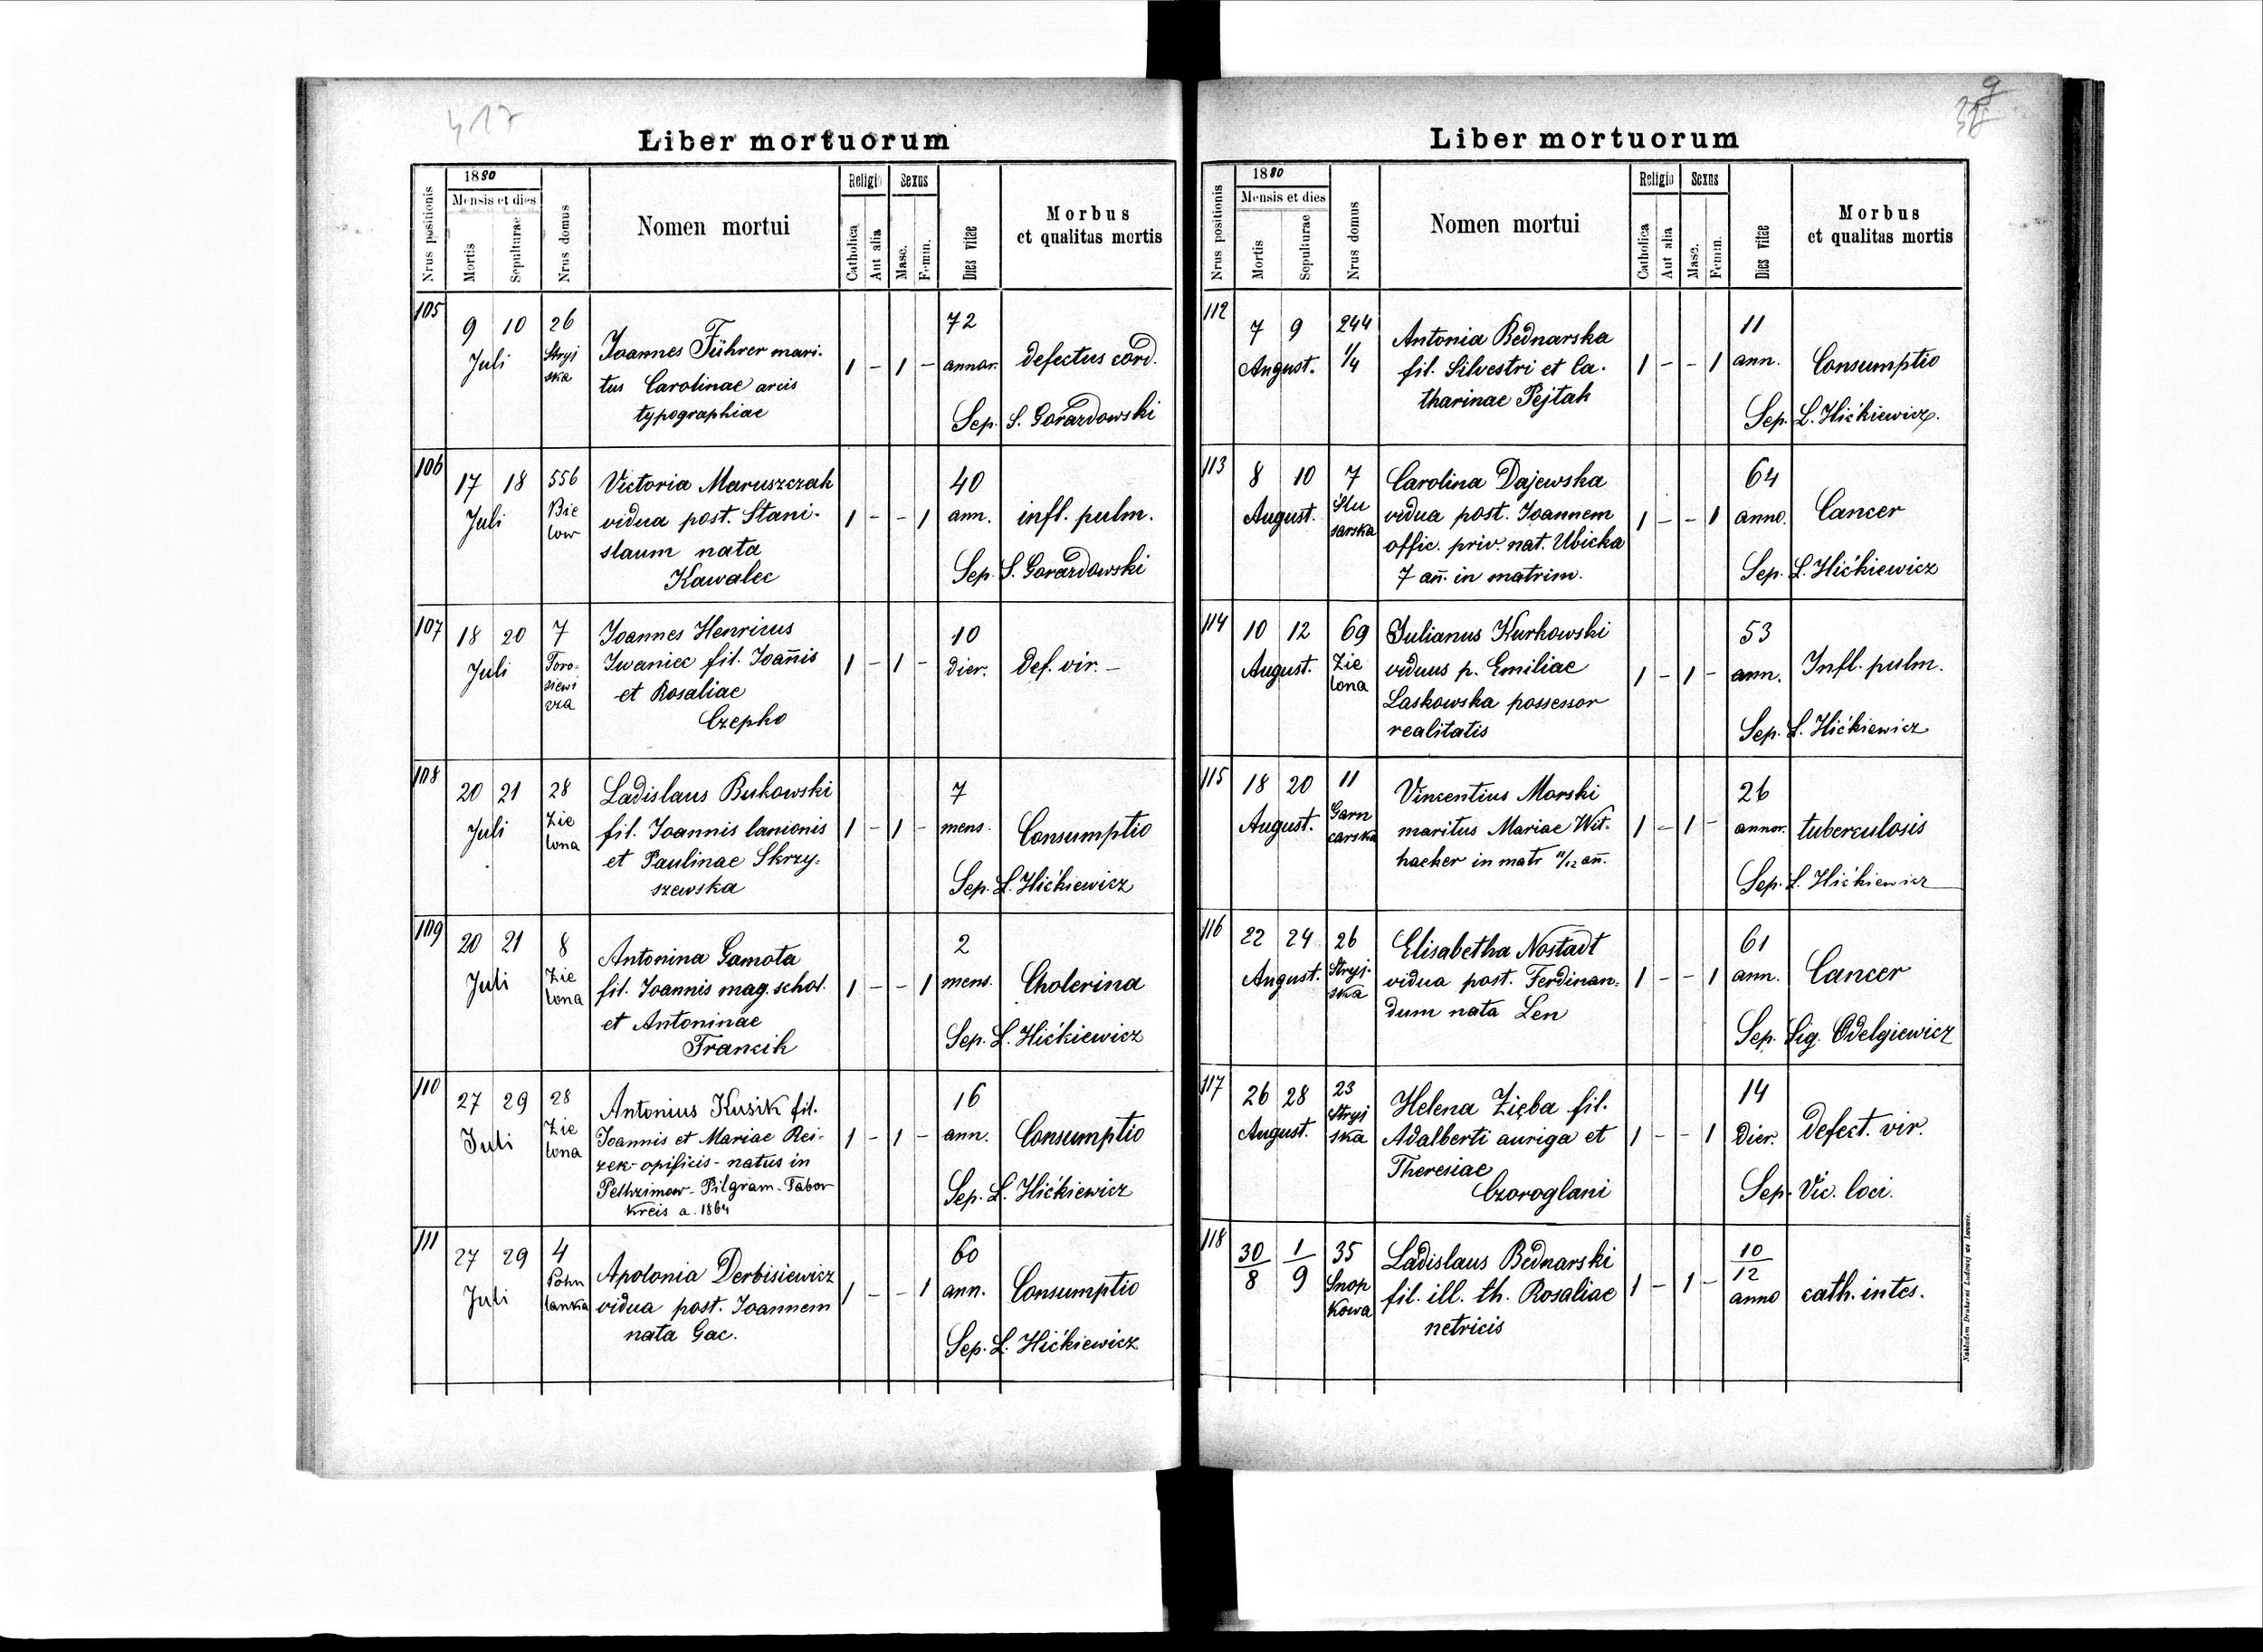 417
Liber mortuorum
Nrus positionis
1880
Mensis et dies
Mortis
Sepulturae
Nrus domus
Nomen mortui
Religio
Catholica
Aut alia
Sexus
Masc.
Femin.
Dies vitae
Morbus
et qualitas mortis
105
9 10 26
Juli
Stryj
ska
Joannes Führer mari-
tus Carolinae arcis
typographiae
1 - 1 -
72
annor.
defectus cord.
Sep. S. Gorazdowski
106
17 18 556
Juli
Bie
low
Victoria Maruszczak
vidua post. Stani-
slaum nata
Kawalec
1 - - 1
40
ann.
infl. pulm.
Sep. S. Gorazdowski
107
18 20 7
Juli
Toro-
siewi
cza
Joannes Henricus
Iwaniec fil. Joan̄is
et Rosaliae
Czepko
1 - 1 -
10
dier.
Def. vir. -
108
20 21 28
Juli
Zie
lona
Ladislaus Bukowski
fil. Joannis lanionis
et Paulinae Skrzy-
szewska
1 - 1 -
7
mens.
Consumptio
Sep. L. Hićkiewicz
109
20 21 8
Juli
Zie
lona
Antonina Gamota
fil. Joannis mag. schol.
et Antoninae
Francik
1 - - 1
2
mens.
Cholerina
Sep. L. Hićkiewicz
110
27 29 28
Juli
Zie
lona
Antonius Kusik fil.
Joannis et Mariae Rei-
zek - opificis - natus in
Pelhrimow - Pilgram - Tabor
Kreis a. 1864
1 - 1 -
16
ann.
Consumptio
Sep. L. Hićkiewicz
111
27 29 4
Juli
Pohu
lanka
Apolonia Derbisiewicz
vidua post. Joannem
nata Gac.
1 - - 1
60
ann.
Consumptio
Sep. L. Hićkiewicz
Liber mortuorum
Nrus positionis
1880
Mensis et dies
Mortis
Sepulturae
Nrus domus
Nomen mortui
Religio
Catholica
Aut alia
Sexus
Masc.
Femin.
Dies vitae
Morbus
et qualitas mortis
112
7 9 244
August. 1/4
Antonia Bednarska
fil. Silvestri et Ca-
tharinae Pejtak
1 - - 1
11
ann.
Consumptio
Sep. L. Hićkiewicz.
113
8 10 7
August.
Ślu
sarska
Carolina Dajewska
vidua post. Joannem
offic. priv. nat. Ubicka
7 an̄. in matrim.
1 - - 1
64
anno.
Cancer
Sep. L. Hićkiewicz
114
10 12 69
August.
Zie
lona
Julianus Kurkowski
viduus p. Emiliae
Laskowska possessor
realitatis
1 - 1 -
53
ann.
Infl. pulm.
Sep. L. Hićkiewicz
115
18 20 11
August.
Garn
carska
Vincentius Morski
maritus Mariae Wit-
hacker in matr 11/12 an̄.
1 - 1 -
26
annor.
tuberculosis
Sep. L. Hićkiewicz
116
22 24 26
August.
Stryj-
ska
Elisabetha Nostadt
vidua post. Ferdinan-
dum nata Len
1 - - 1
61
ann.
Cancer
Sep. Sig. Odelgiewicz
117
26 28 23
August.
Stryj
ska
Helena Zięba fil.
Adalberti auriga et
Theresiae
Czoroglani
1 - - 1
14
dier.
defect. vir.
Sep. Vic. loci.
118
30/8 1/9 35
Snop
kowa
Ladislaus Bednarski
fil. ill. th. Rosaliae
netricis
1 - 1 -
10/12
anno
cath. intes.
Nakładem Drukarni Ludowej we Lwowie.